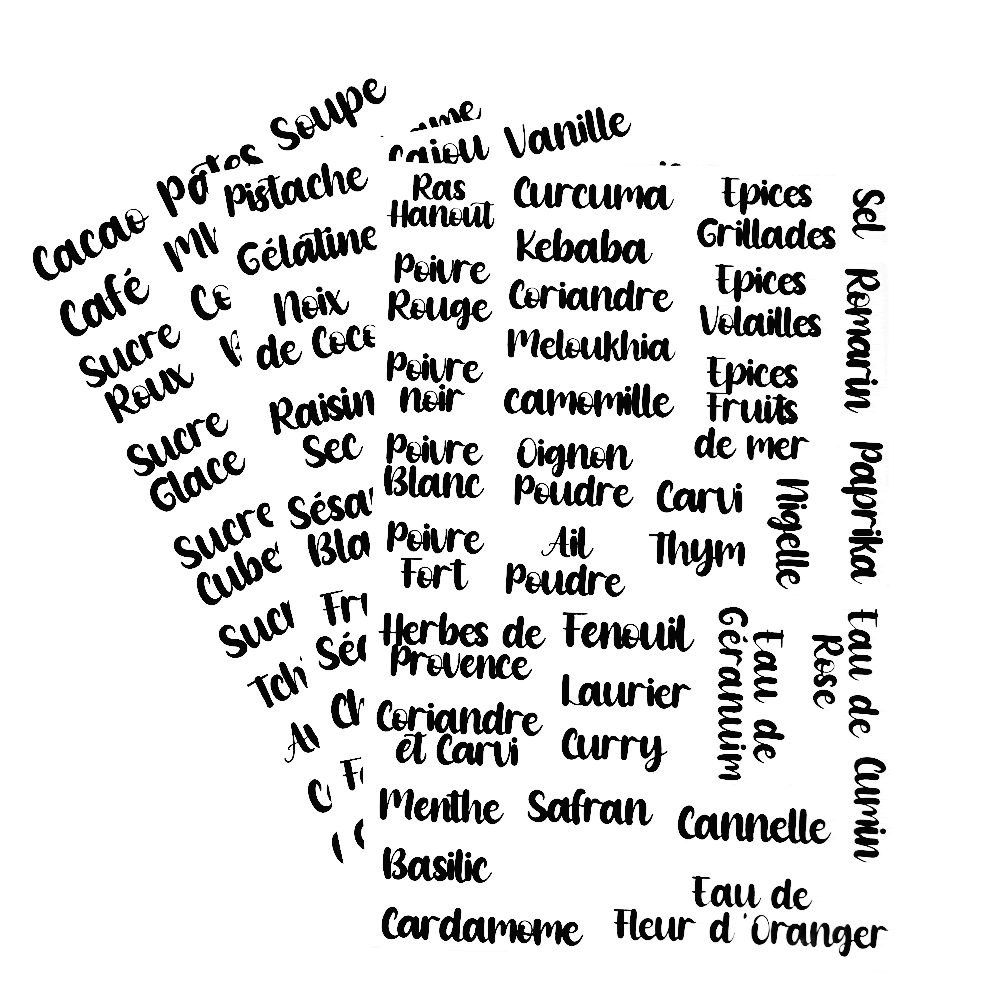 Soupe
Cacao
Pistache
Café
Gélatine
Sucre
Roux
Noix
de Coco
Sucre
Glace
Raisin
Sec
Sucre
Cube
Vanille
Ras
Hanout
Poivre
Rouge
Poivre
noir
Poivre
Blanc
Poivre
Fort
Herbes de
Provence
Coriandre
et Carvi
Menthe
Basilic
Cardamome
Curcuma
Kebaba
Coriandre
Meloukhia
camomille
Oignon
Poudre
Ail
Poudre
Fenouil
Laurier
Curry
Safran
Epices
Grillades
Epices
Volailles
Epices
Fruits
de mer
Carvi
Thym
Nigelle
Eau de
Géranuim
Cannelle
Eau de
Fleur d'Oranger
Sel
Romarin
Paprika
Eau de
Rose
Cumin